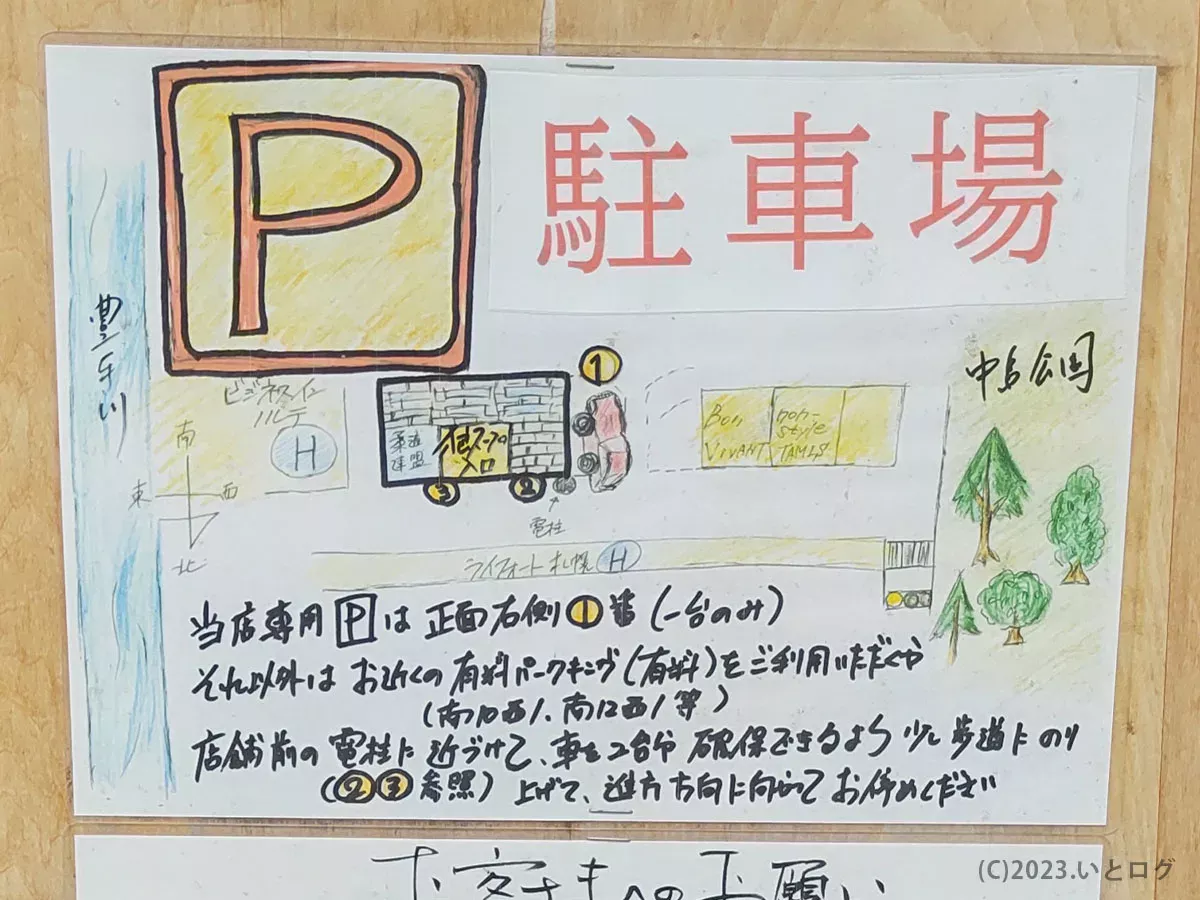 P
駐車場
豊平川
中島公園
①
ビジネスイン
ノルテ
H
南
東 西
北
柔道
連盟
入口
③
②
電柱
Bon
VIVANT
non-
style
ライフォート札幌 H
当店専用 P は 正面右側 ① 番 (一台のみ)
それ以外は お近くの 有料パーキング(有料)をご利用いただくか
(南10西1、南12西1等)
店舗前の 電柱に 近づけて、車を2台分 確保できるよう 少し歩道にのり
(②③参照) 上げて、進行方向に向かって お停めください
お客さまへのお願い
(C)2023.いとログ